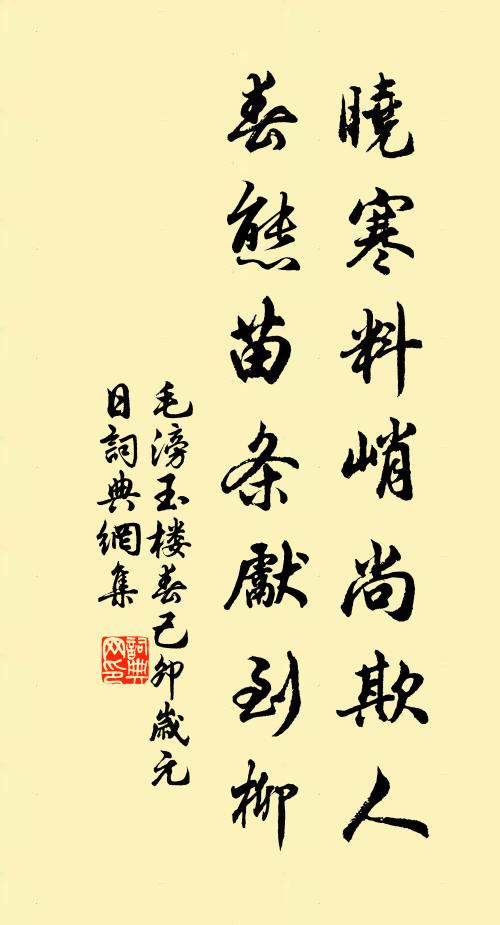 曉寒料峭尚欺人
春態苗条獻到柳
毛滂玉楼春己卯歲元
日詞典網集
詞典网印